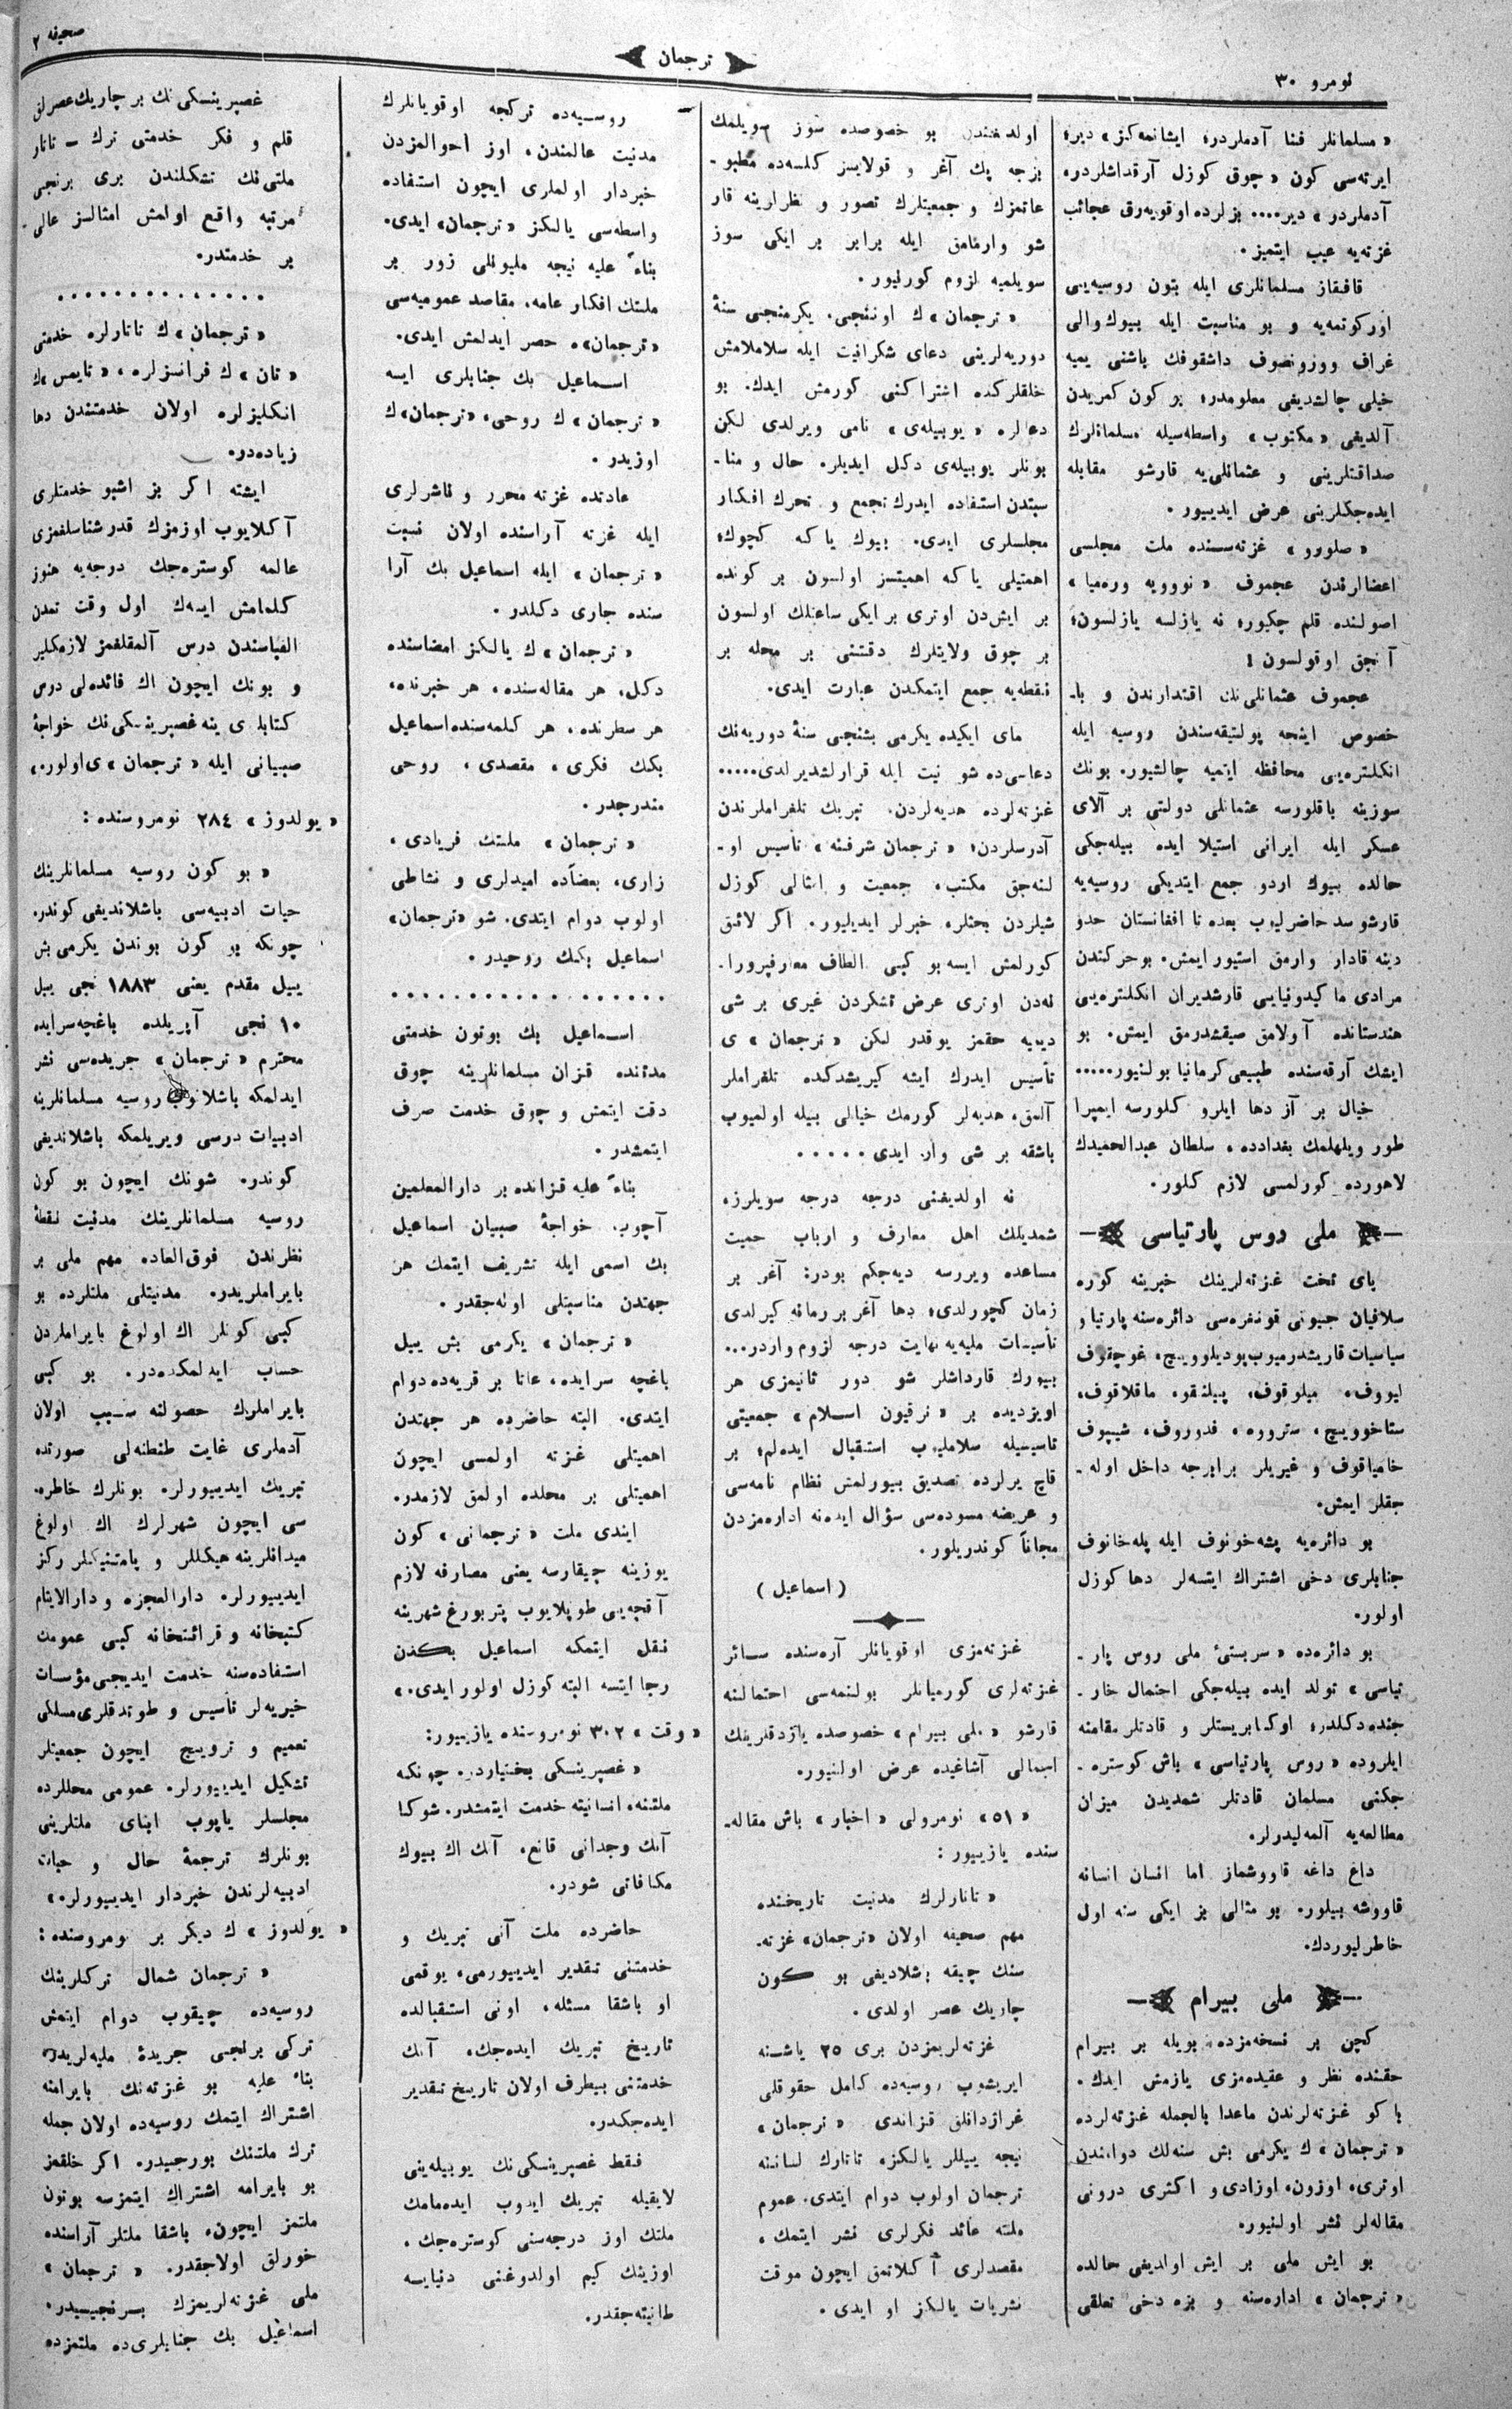 نومرو ٣٠
ترجمان
صحيفه ٢
« مسلمانلر فنا آدملردر؛ ايشانمه‌كز » دير؛
ايرته‌سى كون « چوق كوزل آرقداشلردر،
آدملردر » دير.... بزلرده اوقويه‌رق عجائب
غزته‌يه عيب ايتميز.
قافقاز مسلمانلرى ايله بتون روسيه‌يى
اوركوتمه‌يه و بو مناسبت ايله بيوك والى
غراف وورونصوف داشقوفك باشنى ييمه
خيلى چالشديغى معلومدر؛ بو كون كمريدن
آلديغى « مكتوب » واسطه‌سيله مسلمانلرك
صداقتلرينى و عثمانلى‌يه قارشو مقابله
ايده‌جكلرينى عرض ايدييور.
« صلووو » غزته‌سنده ملت مجلسى
اعضالرندن عجموف « نوويه وره‌ميا »
اصولنده قلم چكيور؛ نه يازلسه يازلسون؛
آنجق اوقولسون !
عجموف عثمانلى‌نك اقتدارندن و با-
خصوص اينجه پولتيقه‌سندن روسيه ايله
انكلتره‌يى محافظه ايتميه چالشيور. بونك
سوزينه باقلورسه عثمانلى دولتى بر آلاى
عسكر ايله ايرانى استيلا ايده بيله‌جكى
حالده بيوك اردو جمع ايتديكى روسيه‌يه
قارشو سد حاضرليوب بعده تا افغانستان حدو
دينه قادار وارمق استيور ايمش. بو حركتدن
مرادى ماكيدونيايى قارشديران انكلتره‌يى
هندستانده آولامق صيقشدرمق ايمش. بو
ايشك آرقه‌سنده طبيعى كرمانيا بولنيور.....
خيال بر آز دها ايلرو كلورسه ايمپرا
طور ويلهلمك بغدادده، سلطان عبدالحميدك
لاهورده كورلمسى لازم كلور.
ملى روس پارتياسى
پاى تخت غزته‌لرينك خبرينه كوره
سلافيان جيونى قونفره‌سى دائره‌سنه پارتيا و
سياسيات قاريشدرميوب بوديلوويچ، غوچقوف
ليووف، ميلوقوف، پيلنقو، ماقلاقوف،
ستاخوويچ، سترووه، فدوروف، شيپوف
خامياقوف و غيريلر برابرجه داخل اوله-
جقلر ايمش.
بو دائره‌يه پشه‌خونوف ايله پله‌خانوف
جنابلرى دخى اشتراك ايتسه‌لر دها كوزل
اولور.
بو دائره‌ده « سربستىٔ ملى روس پار-
تياسى » تولد ايده بيله‌جكى احتمال خار-
جنده دكلدر؛ اوكتابريستلر و قادتلر مقامنه
ايلروده « روس پارتياسى » باش كوستره-
جكنى مسلمان قادتلر شمديدن ميزان
مطالعه‌يه آلمه‌ليدرلر.
داغ داغه قاووشماز اما انسان انسانه
قاووشه بيلور. بو مثالى بز ايكى سنه اول
خاطرليوردك.
ملى بيرام
كچن بر نسخه‌مزده بويله بر بيرام
حقنده نظر و عقيده‌مزى يازمش ايدك.
باكو غزته‌لرندن ماعدا بالجمله غزته‌لرده
« ترجمان » ك يكرمى بش سنه‌لك دوامندن
اوترى، اوزون، اوزادى و اكثرى درونى
مقاله‌لر نشر اولنيور.
بو ايش ملى بر ايش اولديغى حالده
« ترجمان » اداره‌سنه و بزه دخى تعلقى
اولدغندن بو خصوصده سوز سويلمك
بزجه پك آغر و قولايسز كلسه‌ده مطبو-
عاتمزك و جمعيتلرك تصور و نظرلرينه قار
شو وارمامق ايله برابر بر ايكى سوز
سويلميه لزوم كورليور.
« ترجمان » ك اوننجى، يكرمنجى سنهٔ
دوريه‌لرينى دعاى شكرانيت ايله سلاملامش
خلقلركده اشتراكنى كورمش ايدك. بو
دعالره « يوبيله‌ى » نامى ويرلدى لكن
بونلر يوبيله‌ى دكل ايديلر. حال و منا-
سبتدن استفاده ايدرك تجمع و تحرك افكار
مجلسلرى ايدى. بيوك ياكه كچوك؛
اهميتلى ياكه اهميتسز اولسون بر كونده
بر ايش‌دن اوترى بر ايكى ساعتلك اولسون
بر چوق ولايتلرك دقتنى بر محله بر
نقطه‌يه جمع ايتمكدن عبارت ايدى.
ماى ايكيده يكرمى بشنجى سنهٔ دوريه‌نك
دعاسى‌ده شو نيت ايله قرارلشديرلدى.....
غزته‌لرده هديه‌لردن، تبريك تلغراملرندن
آدرسلردن؛ « ترجمان شرفنه » تأسيس او-
لنه‌جق مكتب، جمعيت و امثالى كوزل
شيلردن بحثلر، خبرلر ايديليور. اكر لائق
كورلمش ايسه بو كبى الطاف معارفپرورا-
نه‌دن اوترى عرض تشكردن غيرى بر شى
ديييه حقمز يوقدر لكن « ترجمان » ى
تأسيس ايدرك ايشه كيريشدكده تلغراملر
آلمق، هديه‌لر كورمك خيالى بيله اولميوب
باشقه بر شى وار ايدى.....
نه اولديغنى درجه درجه سويلرز،
شمديلك اهل معارف و ارباب حميت
مساعده ويررسه ديه‌جكم بودر: آغر بر
زمان كچورلدى؛ دها آغر بر زمانه كيرلدى
تأسيسات مليه‌يه نهايت درجه لزوم واردر...
بيورك قارداشلر شو دور ثانيمزى هر
اويزديده بر « ترقيون اسلام » جمعيتى
تاسيسيله سلامليوب استقبال ايده‌لم؛ بر
قاچ يرلرده تصديق بيورلمش نظام نامه‌سى
و عريضه مسوده‌سى سؤال ايدنه اداره‌مزدن
مجاناً كوندريلور.
( اسماعيل )
غزته‌مزى اوقويانلر آره‌سنده سائر
غزته‌لرى كورميانلر بولنمه‌سى احتمالنه
قارشو « ملى بيرام » خصوصده يازدقلرينك
اجمالى آشاغيده عرض اولنيور.
« ٥١ » نومرولى « اخبار » باش مقاله-
سنده يازييور:
« تاتارلرك مدنيت تاريخنده
مهم صحيفه اولان « ترجمان » غزته-
سنك چيقه باشلاديغى بو كون
چاريك عصر اولدى.
غزته‌لريمزدن برى ٢٥ ياشنه
ايريشوب روسيه‌ده كامل حقوقلى
غراژدانلق قزاندى « ترجمان »
نيجه ييللر يالكز، تاتارك لساننه
ترجمان اولوب دوام ايتدى. عموم
ملته عائد فكرلرى نشر ايتمك،
مقصدلرى آكلاتمق ايچون موقت
نشريات يالكز او ايدى.
روسيه‌ده تركجه اوقويانلرك
مدنيت عالمندن، اوز احوالمزدن
خبردار اولملرى ايچون استفاده
واسطه‌سى يالكز « ترجمان » ايدى.
بناءً عليه نيجه مليونلى زور بر
ملتك افكار عامه، مقاصد عموميه‌سى
« ترجمان » ه حصر ايدلمش ايدى.
اسماعيل بك جنابلرى ايسه
« ترجمان » ك روحى، « ترجمان » ك
اوزيدر.
عادتده غزته محرر و ناشرلرى
ايله غزته آراسنده اولان نسبت
« ترجمان » ايله اسماعيل بك آرا
سنده جارى دكلدر.
« ترجمان » ك يالكز امضاسنده
دكل، هر مقاله‌سنده، هر خبرنده،
هر سطرنده، هر كلمه‌سنده اسماعيل
بكك فكرى، مقصدى، روحى
مندرجدر.
« ترجمان » ملتك فريادى،
زارى، بعضاًده اميدلرى و نشاطى
اولوب دوام ايتدى. شو « ترجمان »
اسماعيل بكك روحيدر.
. . . . . . . . . . . . . . . . .
اسماعيل بك بوتون خدمتى
مدتنده قزان مسلمانلرينه چوق
دقت ايتمش و چوق خدمت صرف
ايتمشدر.
بناءً عليه قزانده بر دارالمعلمين
آچوب، خواجهٔ صبيان اسماعيل
بك اسمى ايله تشريف ايتمك هر
جهتدن مناسبتلى اوله‌جقدر.
« ترجمان » يكرمى بش ييل
باغچه سرايده، عاتا بر قريه‌ده دوام
ايتدى. البته حاضرده هر جهتدن
اهميتلى غزته اولمسى ايچون
اهميتلى بر محلده اولمق لازمدر.
ايندى ملت « ترجمانى » كون
يوزينه چيقارسه يعنى مصارفه لازم
آقچه‌يى طوپلايوب پتربورغ شهرينه
نقل ايتمكه اسماعيل بكدن
رجا ايتسه البته كوزل اولور ايدى. »
« وقت » ٣٠٢ نومروسنده يازييور:
« غصپرينسكى بختياردر. چونكه
ملتنه، انسانيته خدمت ايتمشدر. شوكا
آنك وجدانى قانع، آنك اك بيوك
مكافاتى شودر.
حاضرده ملت آنى تبريك و
خدمتنى تقدير ايدييورمى، يوقمى
او باشقا مسئله، اونى استقبالده
تاريخ تبريك ايده‌جك، آنك
خدمتنى بيطرف اولان تاريخ تقدير
ايده‌جكدر.
فقط غصپرينسكى‌نك يوبيله‌ينى
لايقيله تبريك ايدوب ايده‌مامك
ملتك اوز درجه‌سنى كوستره‌جك،
اوزينك كيم اولدوغنى دنيايسه
طانيته‌جقدر.
غصپرينسكى‌نك بر چاريك عصرلق
قلم و فكر خدمتى ترك - تاتار
ملتى‌نك تشكلندن برى برنجى
مرتبه واقع اولمش امثالسز عالى
بر خدمتدر.
. . . . . . . . . . . . . .
« ترجمان » ك تاتارلره خدمتى
« تان » ك فرانسزلره، « تايمس » ك
انكليزلره اولان خدمتندن دها
زياده‌در.
ايشته اكر بز اشبو خدمتلرى
آكلايوب اوزمزك قدرشناسلغمزى
عالمه كوستره‌جك درجه‌يه هنوز
كلمامش ايسه‌ك اول وقت تمدن
الفباسندن درس آلمقلغمز لازمكلير
و بونك ايچون اك فائده‌لى درس
كتابلرى ينه غصپرينسكى‌نك خواجهٔ
صبيانى ايله « ترجمان » ى اولور. »
« يولدوز » ٢٨٤ نومروسنده:
« بو كون روسيه مسلمانلرينك
حيات ادبيه‌سى باشلانديغى كوندر.
چونكه بو كون بوندن يكرمى بش
ييل مقدم يعنى ١٨٨٣ نجى ييل
١٠ نجى آپريلده باغچه‌سرايده
محترم « ترجمان » جريده‌سى نشر
ايدلمكه باشلانوب روسيه مسلمانلرينه
ادبيات درسى ويريلمكه باشلانديغى
كوندر. شونك ايچون بو كون
روسيه مسلمانلرينك مدنيت نقطهٔ
نظرندن فوق‌العاده مهم ملى بر
بايراملريدر. مدنيتلى ملتلرده بو
كبى كونلر اك اولوغ بايراملردن
حساب ايدلمكده‌در. بو كبى
بايراملرك حصولنه سبب اولان
آدملرى غايت طنطنه‌لى صورتده
تبريك ايدييورلر. بونلرك خاطره-
سى ايچون شهرلرك اك اولوغ
ميدانلرينه هيكللر و پامتنيكلر ركز
ايدييورلر. دارالعجزه و دارالايتام
كتبخانه و قرائتخانه كبى عمومك
استفاده‌سنه خدمت ايديجى مؤسسات
خيريه‌لر تأسيس و طوتدقلرى مسلكى
تعميم و ترويج ايچون جمعيتلر
تشكيل ايدييورلر. عمومى محللرده
مجلسلر ياپوب ابناى ملتلرينى
بونلرك ترجمهٔ حال و حيات
ادبيه‌لرندن خبردار ايدييورلر. »
« يولدوز » ك ديكر بر نومروسنده:
« ترجمان شمال تركلرينك
روسيه‌ده چيقوب دوام ايتمش
تركى برلجى جريدهٔ مليه‌لريدر
بناءً عليه بو غزته‌نك بايرامنه
اشتراك ايتمك روسيه‌ده اولان جمله
ترك ملتنك بورجيدر. اكر خلقمز
بو بايرامه اشتراك ايتمزسه بوتون
ملتمز ايچون، باشقا ملتلر آراسنده
خورلق اولاجقدر. « ترجمان »
ملى غزته‌لريمزك برنجيسيدر.
اسماعيل بك جنابلرى‌ده ملتمزده